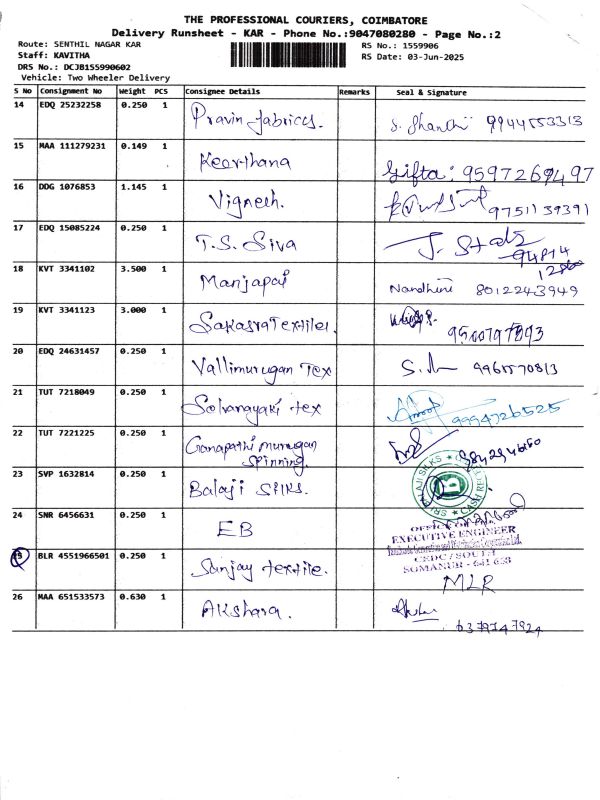 THE PROFESSIONAL COURIERS, COIMBATORE
Delivery Runsheet - KAR - Phone No.:9047080280 - Page No.:2
Route: SENTHIL NAGAR KAR
RS No.: 1559906
Staff: KAVITHA
RS Date: 03-Jun-2025
DRS No.: DCJB155990602
Vehicle: Two Wheeler Delivery
S No Consignment No Weight PCS Consignee Details Remarks Seal & Signature
14 EDQ 25232258 0.250 1 Pravin fabrics. S. Shanthi 9944553313
15 MAA 111279231 0.149 1 Keerthana Gifta: 9597269497
16 DDG 1076853 1.145 1 Vignesh. 9751139391
17 EDQ 15085224 0.250 1 T.S. Siva
18 KVT 3341102 3.500 1 Manjapai Nandhini 8012243949
19 KVT 3341123 3.000 1 Sakasra Textiles.
20 EDQ 24631457 0.250 1 Vallimurugan Tex 9965570813
21 TUT 7218049 0.250 1 Selvanayaki tex 9994726525
22 TUT 7221225 0.250 1 Ganapathi murugan
Spinning.
23 SVP 1632814 0.250 1 Balaji Silks. SRI BALAJI SILKS
24 SNR 6456631 0.250 1 EB
EXECUTIVE ENGINEER
25 BLR 4551966501 0.250 1 Sanjay textile. CEDC / SOUTH
SOMANUR - 641 668
MLR
26 MAA 651533573 0.630 1 Akshara. 6379747924